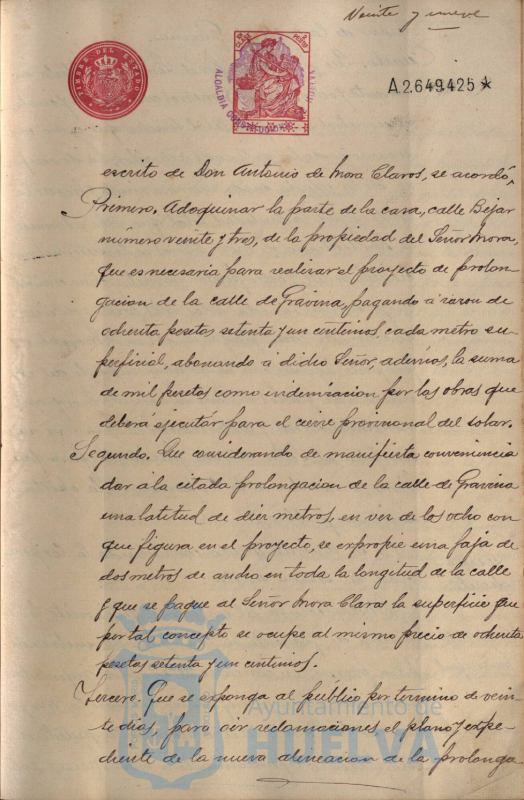 Veinte y nueve
TIMBRE DEL ESTADO
ALCALDIA CONSTITUCIONAL
HUELVA
A.2.649.425*
escrito de Don Antonio de Mora Claros, se acordó,
Primero. Adoquinar la parte de la casa, calle Béjar
número veinte y tres, de la propiedad del Señor Mora,
que es necesaria para realizar el proyecto de prolon-
gacion de la calle de Gravina, pagando á razon de
ochenta pesetas setenta y un centimos, cada metro su-
perficial, abonando á dicho Señor, además, la suma
de mil pesetas como indemizacion por las obras que
deberá ejecutar para el cierre provisional del solar.
Segundo. Que considerando de manifiesta conveniencia
dar á la citada prolongacion de la calle de Gravina
una latitud de diez metros, en vez de los ocho con
que figura en el proyecto, se expropie una faja de
dos metros de ancho en toda la longitud de la calle
y que se pague al Señor Mora Claros la superficie que
por tal concepto se ocupe al mismo precio de ochenta
pesetas setenta y un centimos.
Tercero. Que se exponga al público por termino de vein-
te dias, para oir reclamaciones, el plano y expe-
diente de la nueva alineacion de la prolonga
Ayuntamiento de
HUELVA